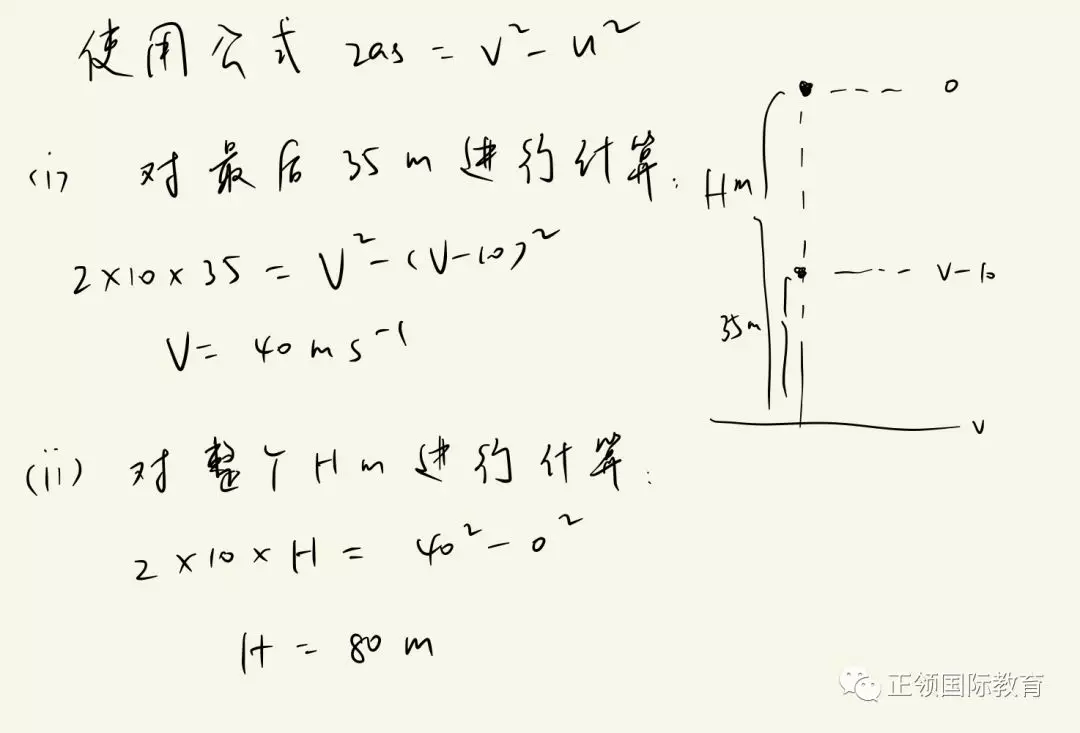 使用公式 2as = v² - u²
(i) 对最后 35 m 进行计算:
2×10×35 = V² - (V-10)²
V = 40 m s⁻¹
(ii) 对整个 H m 进行计算:
2×10×H = 40² - 0²
H = 80 m
0
H m
V-10
35 m
V
正领国际教育